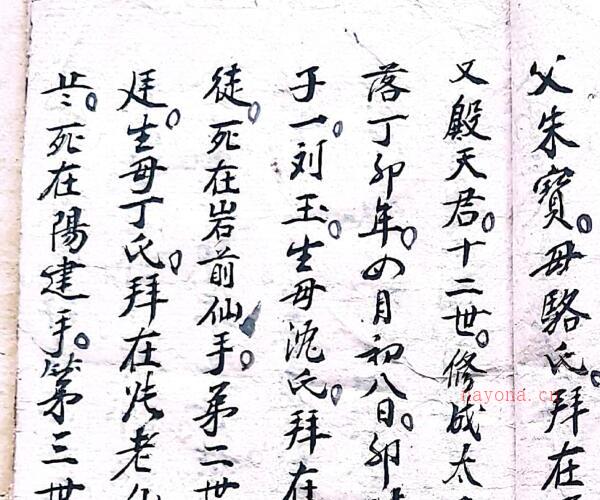 父朱寶。母駱氏。拜在
又殿天君。十二世。修成太
落丁卯年。四月初八日。卯時
子一。刘玉。生母沈氏。拜在
徒。死在岩前仙手。弟二世
廷。生母丁氏。拜在 老仙
死在陽建手。第三世
nayona.cn